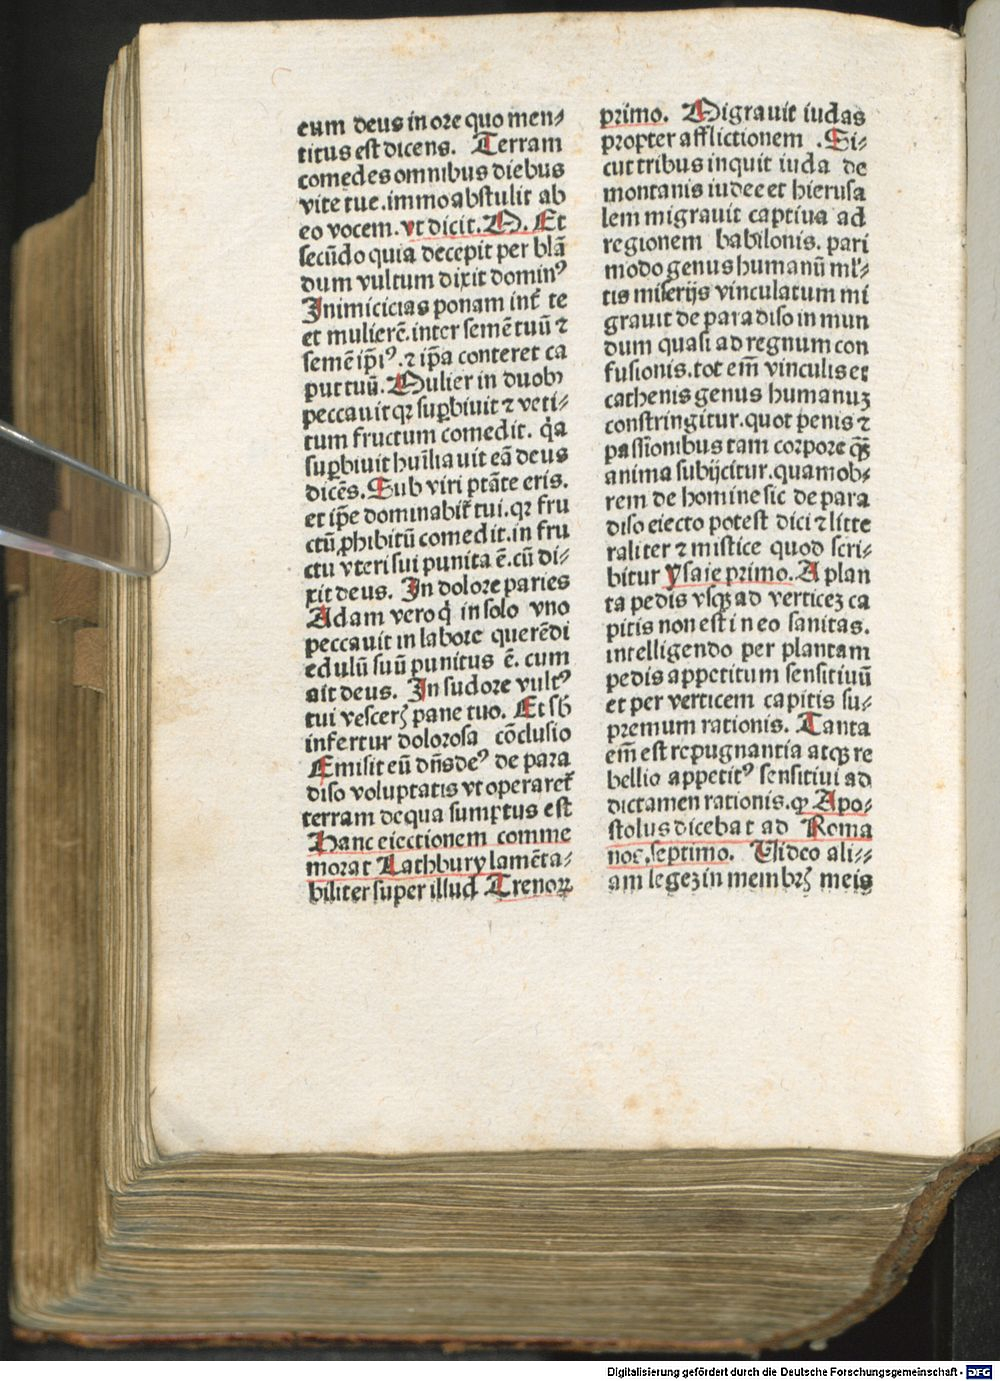 eum deus in ore quo men⸗
titus est dicens. Terram
comedes omnibus diebus
vite tue. immo abstulit ab
eo vocem. vt dicit. M. Et
secūdo quia decepit per blā
dum vultum dixit dominꝰ
Inimicicias ponam int̄ te
et mulierē. inter semē tuū ⁊
semē ip̄iꝰ. ⁊ ip̄a conteret ca
put tuū. Mulier in duobꝫ
peccauit qꝛ suꝑbiuit ⁊ veti⸗
tum fructum comedit. q̇a
suꝑbiuit hūiliauit eā deus
dicēs. Sub viri ptāte eris.
et ip̄e dominabit̄ tui. qꝛ fru
ctū ꝓhibitū comedit. in fru
ctu vteri sui punita ē. cū di⸗
xit deus. In dolore paries
Adam vero q̇ in solo vno
peccauit in labore querēdi
edulū suū punitus ē. cum
ait deus. In sudore vultꝰ
tui vescerꝭ pane tuo. Et sꝫ
infertur dolorosa cōclusio
Emisit eū dn̄s deꝰ de para
diso voluptatis vt operaret̄
terram de qua sumptus est
Hanc eiectionem comme
morat Lathbury lamēta⸗
biliter super illud Trenoꝝ
primo. Migrauit iudas
propter afflictionem. Si⸗
cut tribus inquit iuda de
montanis iudee et hierusa
lem migrauit captiua ad
regionem babilonis. pari
modo genus humanū ml̄⸗
tis miserijs vinculatum mi
grauit de paradiso in mun
dum quasi ad regnum con
fusionis. tot em̄ vinculis et
cathenis genus humanuꝫ
constringitur. quot penis ⁊
passionibus tam corpore qꝫ̄
anima subijcitur. quamob⸗
rem de homine sic de para
diso eiecto potest dici ⁊ litte
raliter ⁊ mistice quod scri⸗
bitur ysaie primo. A plan
ta pedis vsqꝫ ad verticeꝫ ca
pitis non est in eo sanitas.
intelligendo per plantam
pedis appetitum sensitiuū
et per verticem capitis su⸗
premum rationis. Tanta
em̄ est repugnantia atqꝫ re
bellio appetitꝰ sensitiui ad
dictamen rationis. ꝙ Apo⸗
stolus dicebat ad Roma
nos. septimo. Video ali⸗⸗
am legeꝫ in membrꝭ meis
Digitalisierung gefördert durch die Deutsche Forschungsgemeinschaft - DFG